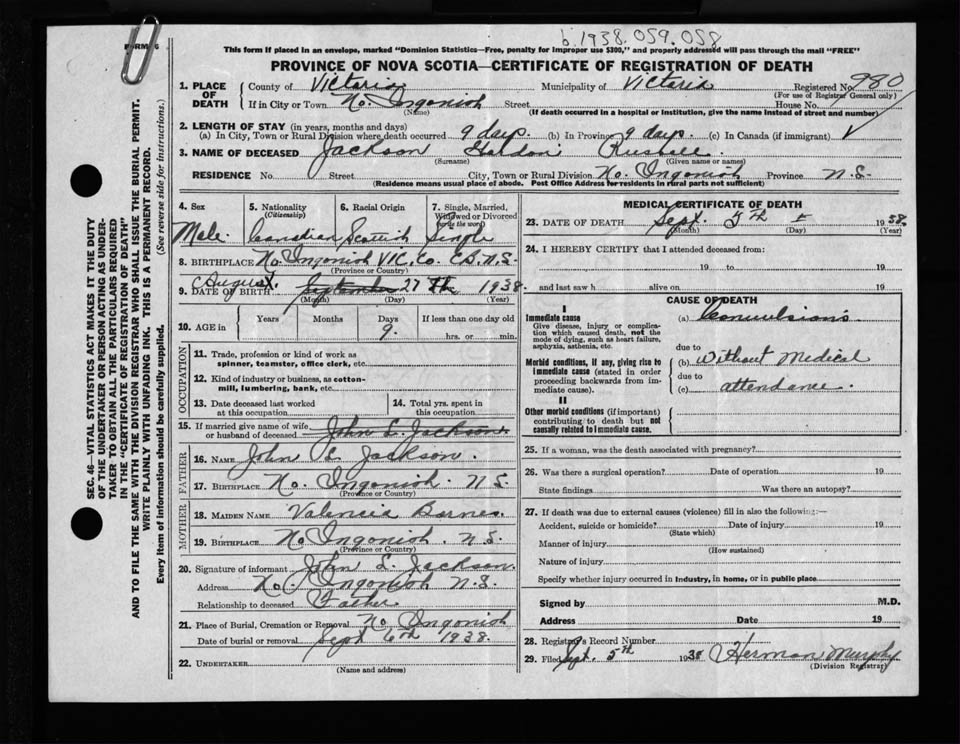 b.1938.059.058
FORM 6
This form if placed in an envelope, marked "Dominion Statistics—Free, penalty for improper use $300," and properly addressed will pass through the mail "FREE"
PROVINCE OF NOVA SCOTIA—CERTIFICATE OF REGISTRATION OF DEATH
1. PLACE OF DEATH County of Victoria Municipality of Victoria Registered No. 980
(For use of Registrar General only)
If in City or Town No. Ingonish Street House No.
(Name) (If death occurred in a hospital or institution, give the name instead of street and number)
2. LENGTH OF STAY (in years, months and days)
(a) In City, Town or Rural Division where death occurred 9 days. (b) In Province 9 days. (c) In Canada (if immigrant)
3. NAME OF DECEASED Jackson Russell
(Surname) (Given name or names)
RESIDENCE No. Street City, Town or Rural Division No. Ingonish Province N.S.
(Residence means usual place of abode. Post Office Address for residents in rural parts not sufficient)
4. Sex 5. Nationality (Citizenship) 6. Racial Origin 7. Single, Married, Widowed or Divorced
Male Canadian Scottish Single
8. BIRTHPLACE No. Ingonish VIC. Co. C.B. N.S.
(Province or Country)
9. DATE OF BIRTH August September 27 1938.
(Month) (Day) (Year)
10. AGE in Years Months Days If less than one day old
9. hrs. or min.
OCCUPATION
11. Trade, profession or kind of work as spinner, teamster, office clerk, etc.
12. Kind of industry or business, as cotton-mill, lumbering, bank, etc.
13. Date deceased last worked at this occupation
14. Total yrs. spent in this occupation
15. If married give name of wife or husband of deceased John L. Jackson
FATHER
16. NAME John L Jackson.
17. BIRTHPLACE No. Ingonish. N.S.
(Province or Country)
MOTHER
18. MAIDEN NAME Valencia Barnes.
19. BIRTHPLACE No Ingonish. N.S.
(Province or Country)
20. Signature of informant John L. Jackson.
Address No. Ingonish N.S.
Relationship to deceased Father
21. Place of Burial, Cremation or Removal No Ingonish
Date of burial or removal Sept 6th 1938.
22. UNDERTAKER
(Name and address)
MEDICAL CERTIFICATE OF DEATH
23. DATE OF DEATH Sept. 5 1938.
(Month) (Day) (Year)
24. I HEREBY CERTIFY that I attended deceased from:
19 to 19
and last saw h alive on 19
CAUSE OF DEATH
I
Immediate cause
Give disease, injury or complication which caused death, not the mode of dying, such as heart failure, asphyxia, asthenia, etc.
(a) Convulsions
due to
Morbid conditions, if any, giving rise to immediate cause (stated in order proceeding backwards from immediate cause).
(b) Without Medical
due to
(c) attendance.
II
Other morbid conditions (if important) contributing to death but not causally related to immediate cause.
25. If a woman, was the death associated with pregnancy?
26. Was there a surgical operation? Date of operation 19
State findings Was there an autopsy?
27. If death was due to external causes (violence) fill in also the following:—
Accident, suicide or homicide? Date of injury 19
(State which)
Manner of injury
(How sustained)
Nature of injury
Specify whether injury occurred in industry, in home, or in public place
Signed by M.D.
Address Date 19
28. Registrar's Record Number
29. Filed Sept. 5th 1938 Herman Murphy
(Division Registrar)
SEC. 46—VITAL STATISTICS ACT MAKES IT THE DUTY
OF THE UNDERTAKER OR PERSON ACTING AS UNDER-
TAKER TO OBTAIN ALL THE PARTICULARS REQUIRED
IN THE "CERTIFICATE OF REGISTRATION OF DEATH"
AND TO FILE THE SAME WITH THE DIVISION REGISTRAR WHO SHALL ISSUE THE BURIAL PERMIT.
WRITE PLAINLY WITH UNFADING INK. THIS IS A PERMANENT RECORD.
Every item of information should be carefully supplied. (See reverse side for instructions.)